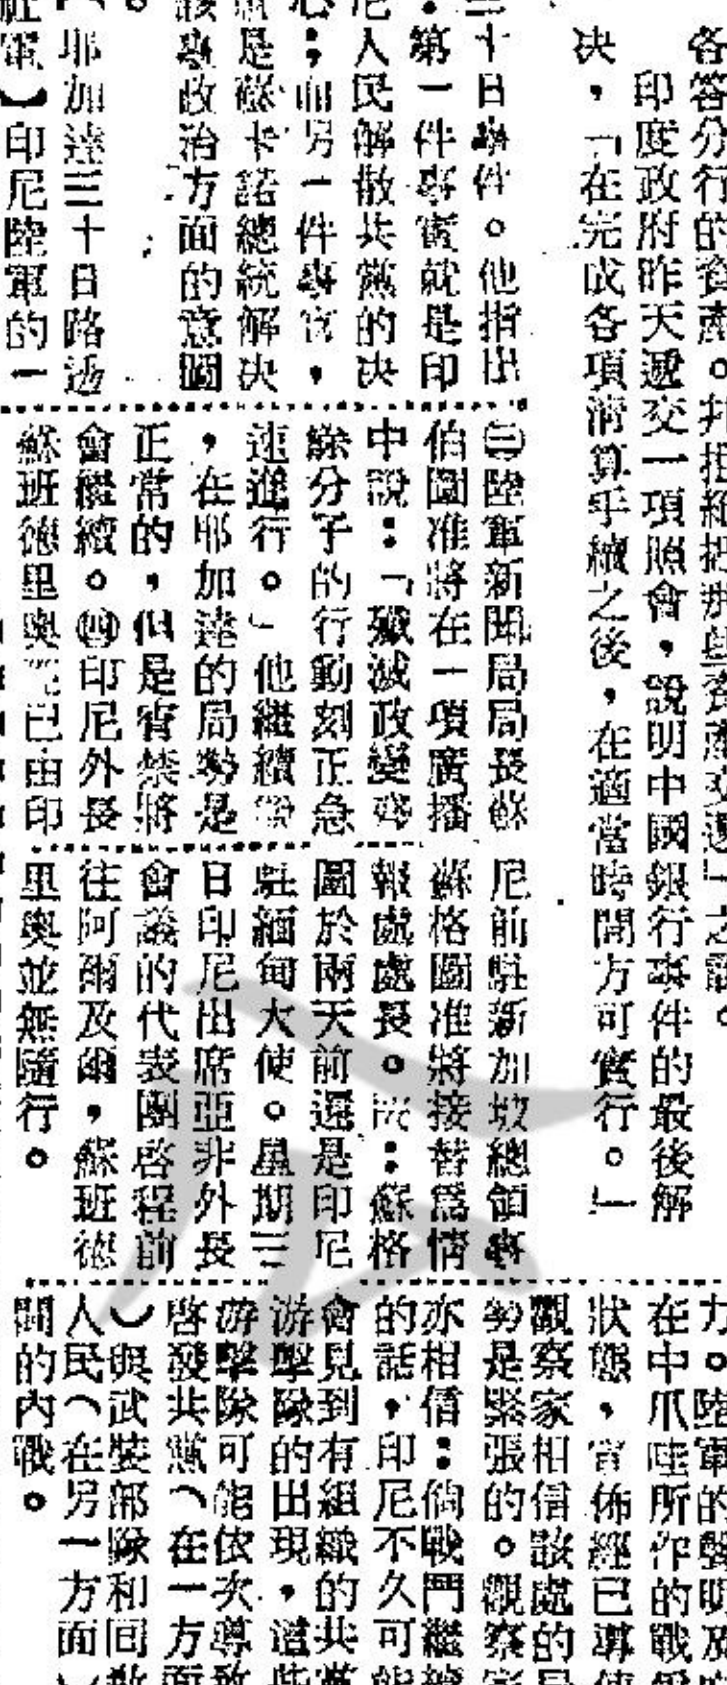 各答分行的資產。并拒絕把那些資產交還」之說。
印度政府昨天遞交一項照會，說明中國銀行事件的最後解
决，「在完成各項淸算手續之後，在適當時間方可實行。」
三十日事件。他指出
：第一件事實就是印
尼人民解散共黨的决
心；而另一件事實，
就是蘇卡諾總統解决
該專政治方面的意圖
。
【耶加達三十日路透
社電】印尼陸軍的一
㊂陸軍新聞局局長蘇
伯圖准將在一項廣播
中說：「殲滅政變
餘分子的行動刻正急
速進行。」他繼續
，在耶加達的局勢是
正常的，但是宵禁將
會繼續。㊃印尼外長
蘇班德里奧已由印
尼前駐新加坡總領事
蘇格圖准將接替爲情
報處處長。：蘇格
圖於兩天前還是印尼
駐緬甸大使。星期三
日印尼出席亞非外長
會議的代表團啓程前
往阿爾及爾，蘇班德
里奧並無隨行。
力。陸軍的聲明及
在中爪哇所作的戰
狀態，宣佈經已導使
觀察家相信該處的局
勢是緊張的。觀察家
亦相信：倘戰鬥繼續
的話，印尼不久可能
會見到有組織的共黨
游擊隊的出現，這些
游擊隊可能依次導致
啓發共黨（在一方面
）與武裝部隊和回敎
人民（在另一方面）
間的內戰。